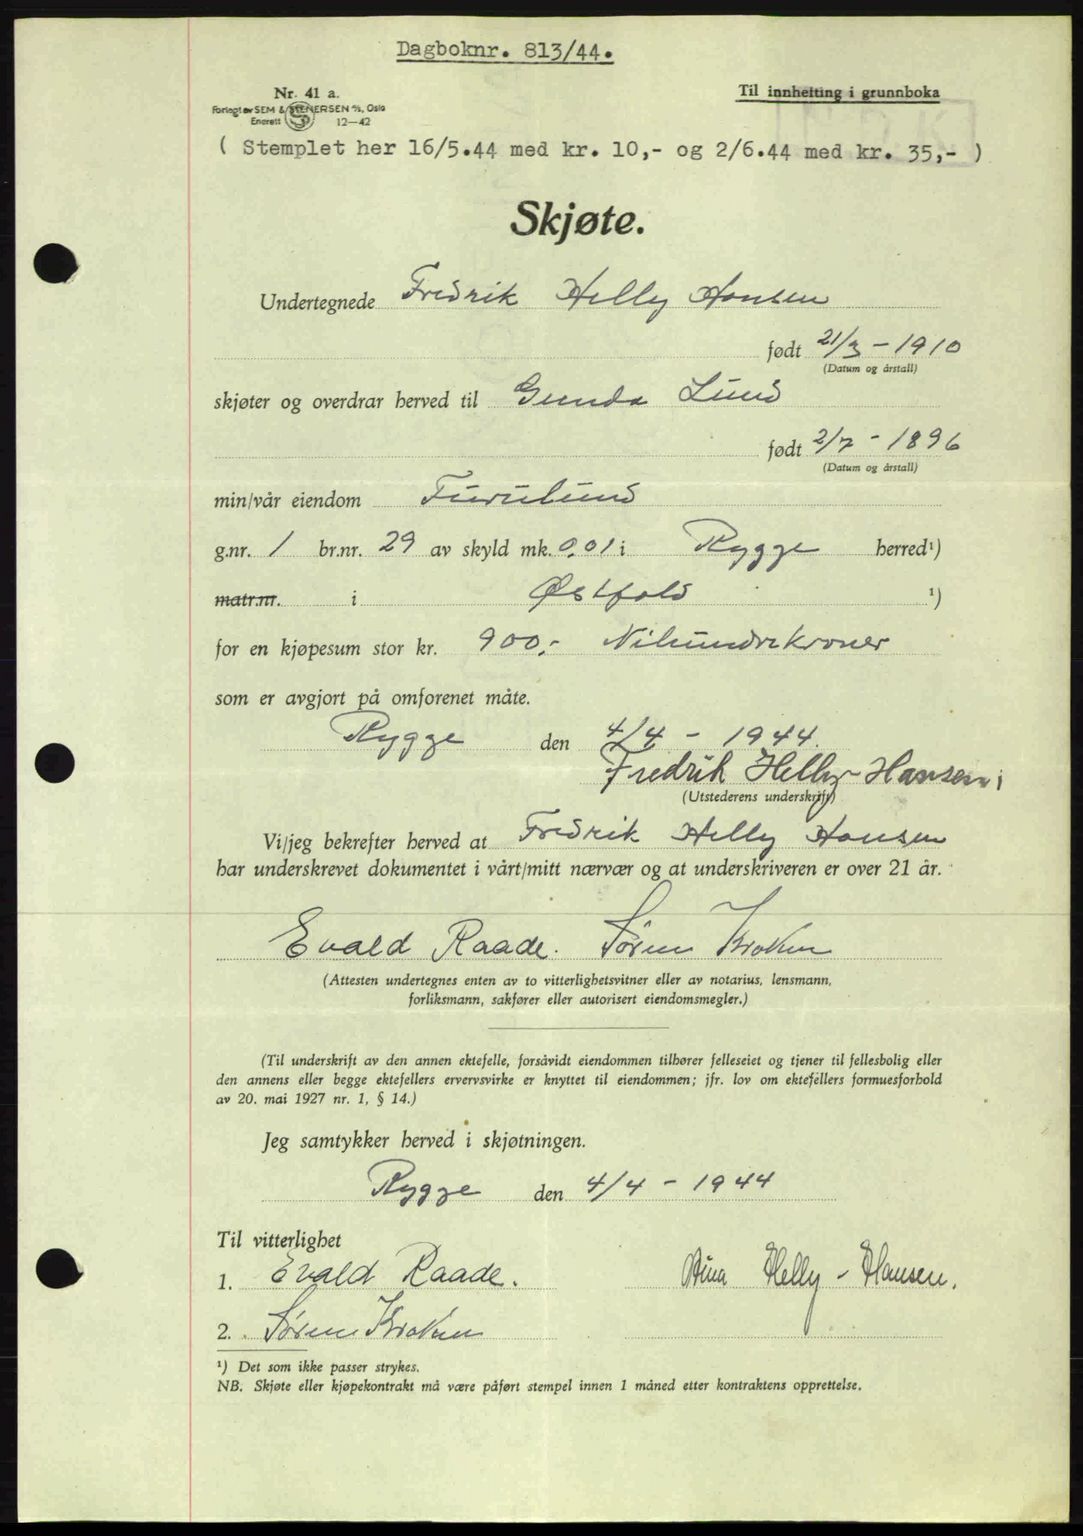 Dagboknr. 813/44.
Nr. 41 a.
Forlagt av SEM & STENERSEN A/S, Oslo
Enerett 12—42
Til innhefting i grunnboka
( Stemplet her 16/5.44 med kr. 10,- og 2/6.44 med kr. 35,- )
Skjøte.
Undertegnede Fredrik Helly Hansen
født 21/3 - 1910
(Datum og årstall)
skjøter og overdrar herved til Gunda Lund
født 2/7 - 1896
(Datum og årstall)
min/vår eiendom Furulund
g.nr. 1 br.nr. 29 av skyld mk. 0,01 i Rygge herred¹)
matr.nr. i Østfold ¹)
for en kjøpesum stor kr. 900,- Nihundrekroner
som er avgjort på omforenet måte.
Rygge den 4/4 - 1944.
Fredrik Helly-Hansen
(Utstederens underskrift)
Vi/jeg bekrefter herved at Fredrik Helly Hansen
har underskrevet dokumentet i vårt/mitt nærvær og at underskriveren er over 21 år.
Evald Raade. Søren Kroken
(Attesten undertegnes enten av to vitterlighetsvitner eller av notarius, lensmann,
forliksmann, sakfører eller autorisert eiendomsmegler.)
(Til underskrift av den annen ektefelle, forsåvidt eiendommen tilhører felleseiet og tjener til fellesbolig eller
den annens eller begge ektefellers ervervsvirke er knyttet til eiendommen; jfr. lov om ektefellers formuesforhold
av 20. mai 1927 nr. 1, § 14.)
Jeg samtykker herved i skjøtningen.
Rygge den 4/4 - 1944
Til vitterlighet
1. Evald Raade. Helly-Hansen.
2. Søren Kroken
¹) Det som ikke passer strykes.
NB. Skjøte eller kjøpekontrakt må være påført stempel innen 1 måned etter kontraktens opprettelse.